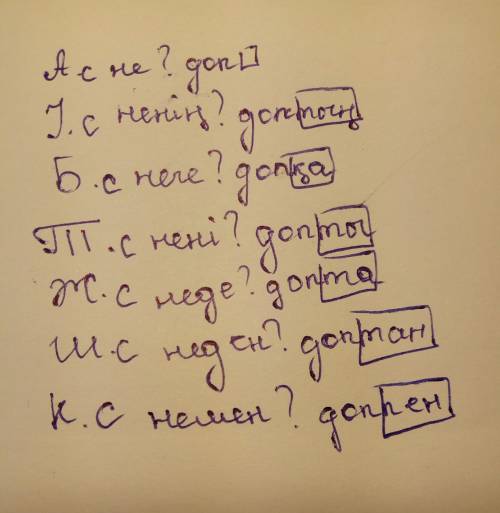 А с не? доп
І. с ненің? доптың
Б. с неге? допқа
Т. с нені? допты
Ж. с неде? допта
Ш. с неден? доптан
К. с немен? доппен